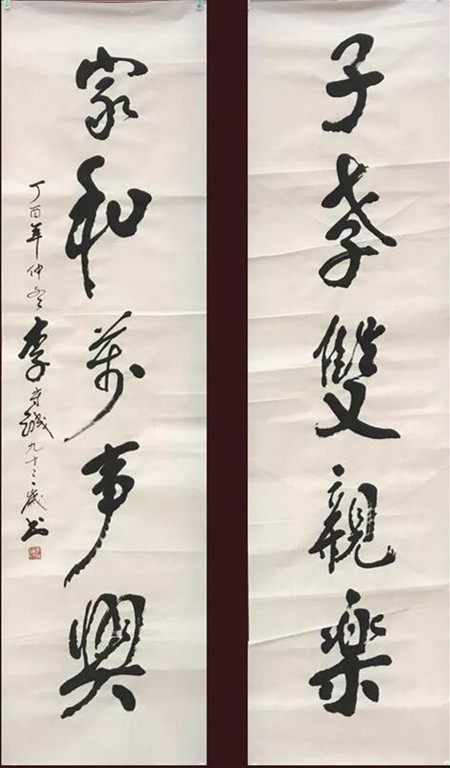 子孝雙親樂
家和萬事興
丁酉年仲冬李守誠九十三歲書